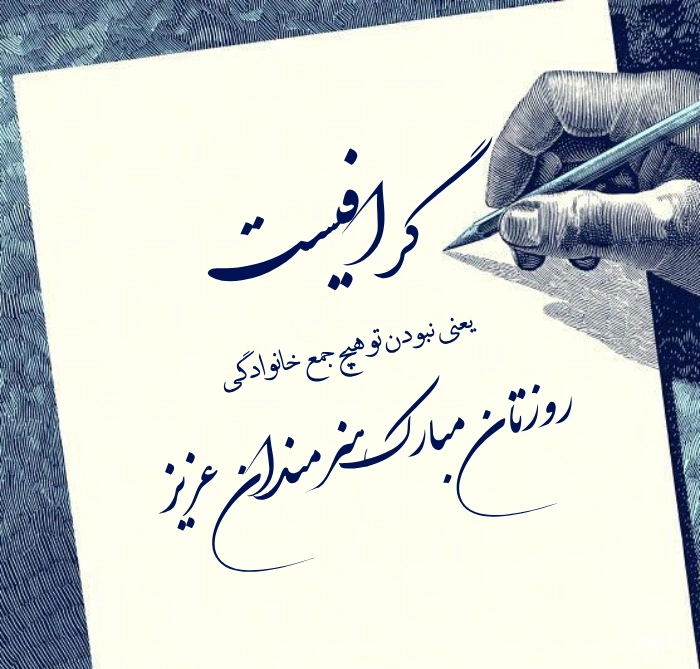 گرافیست
یعنی نبودن تو هیچ جمع خانوادگی
روزتان مبارک هنرمندان عزیز